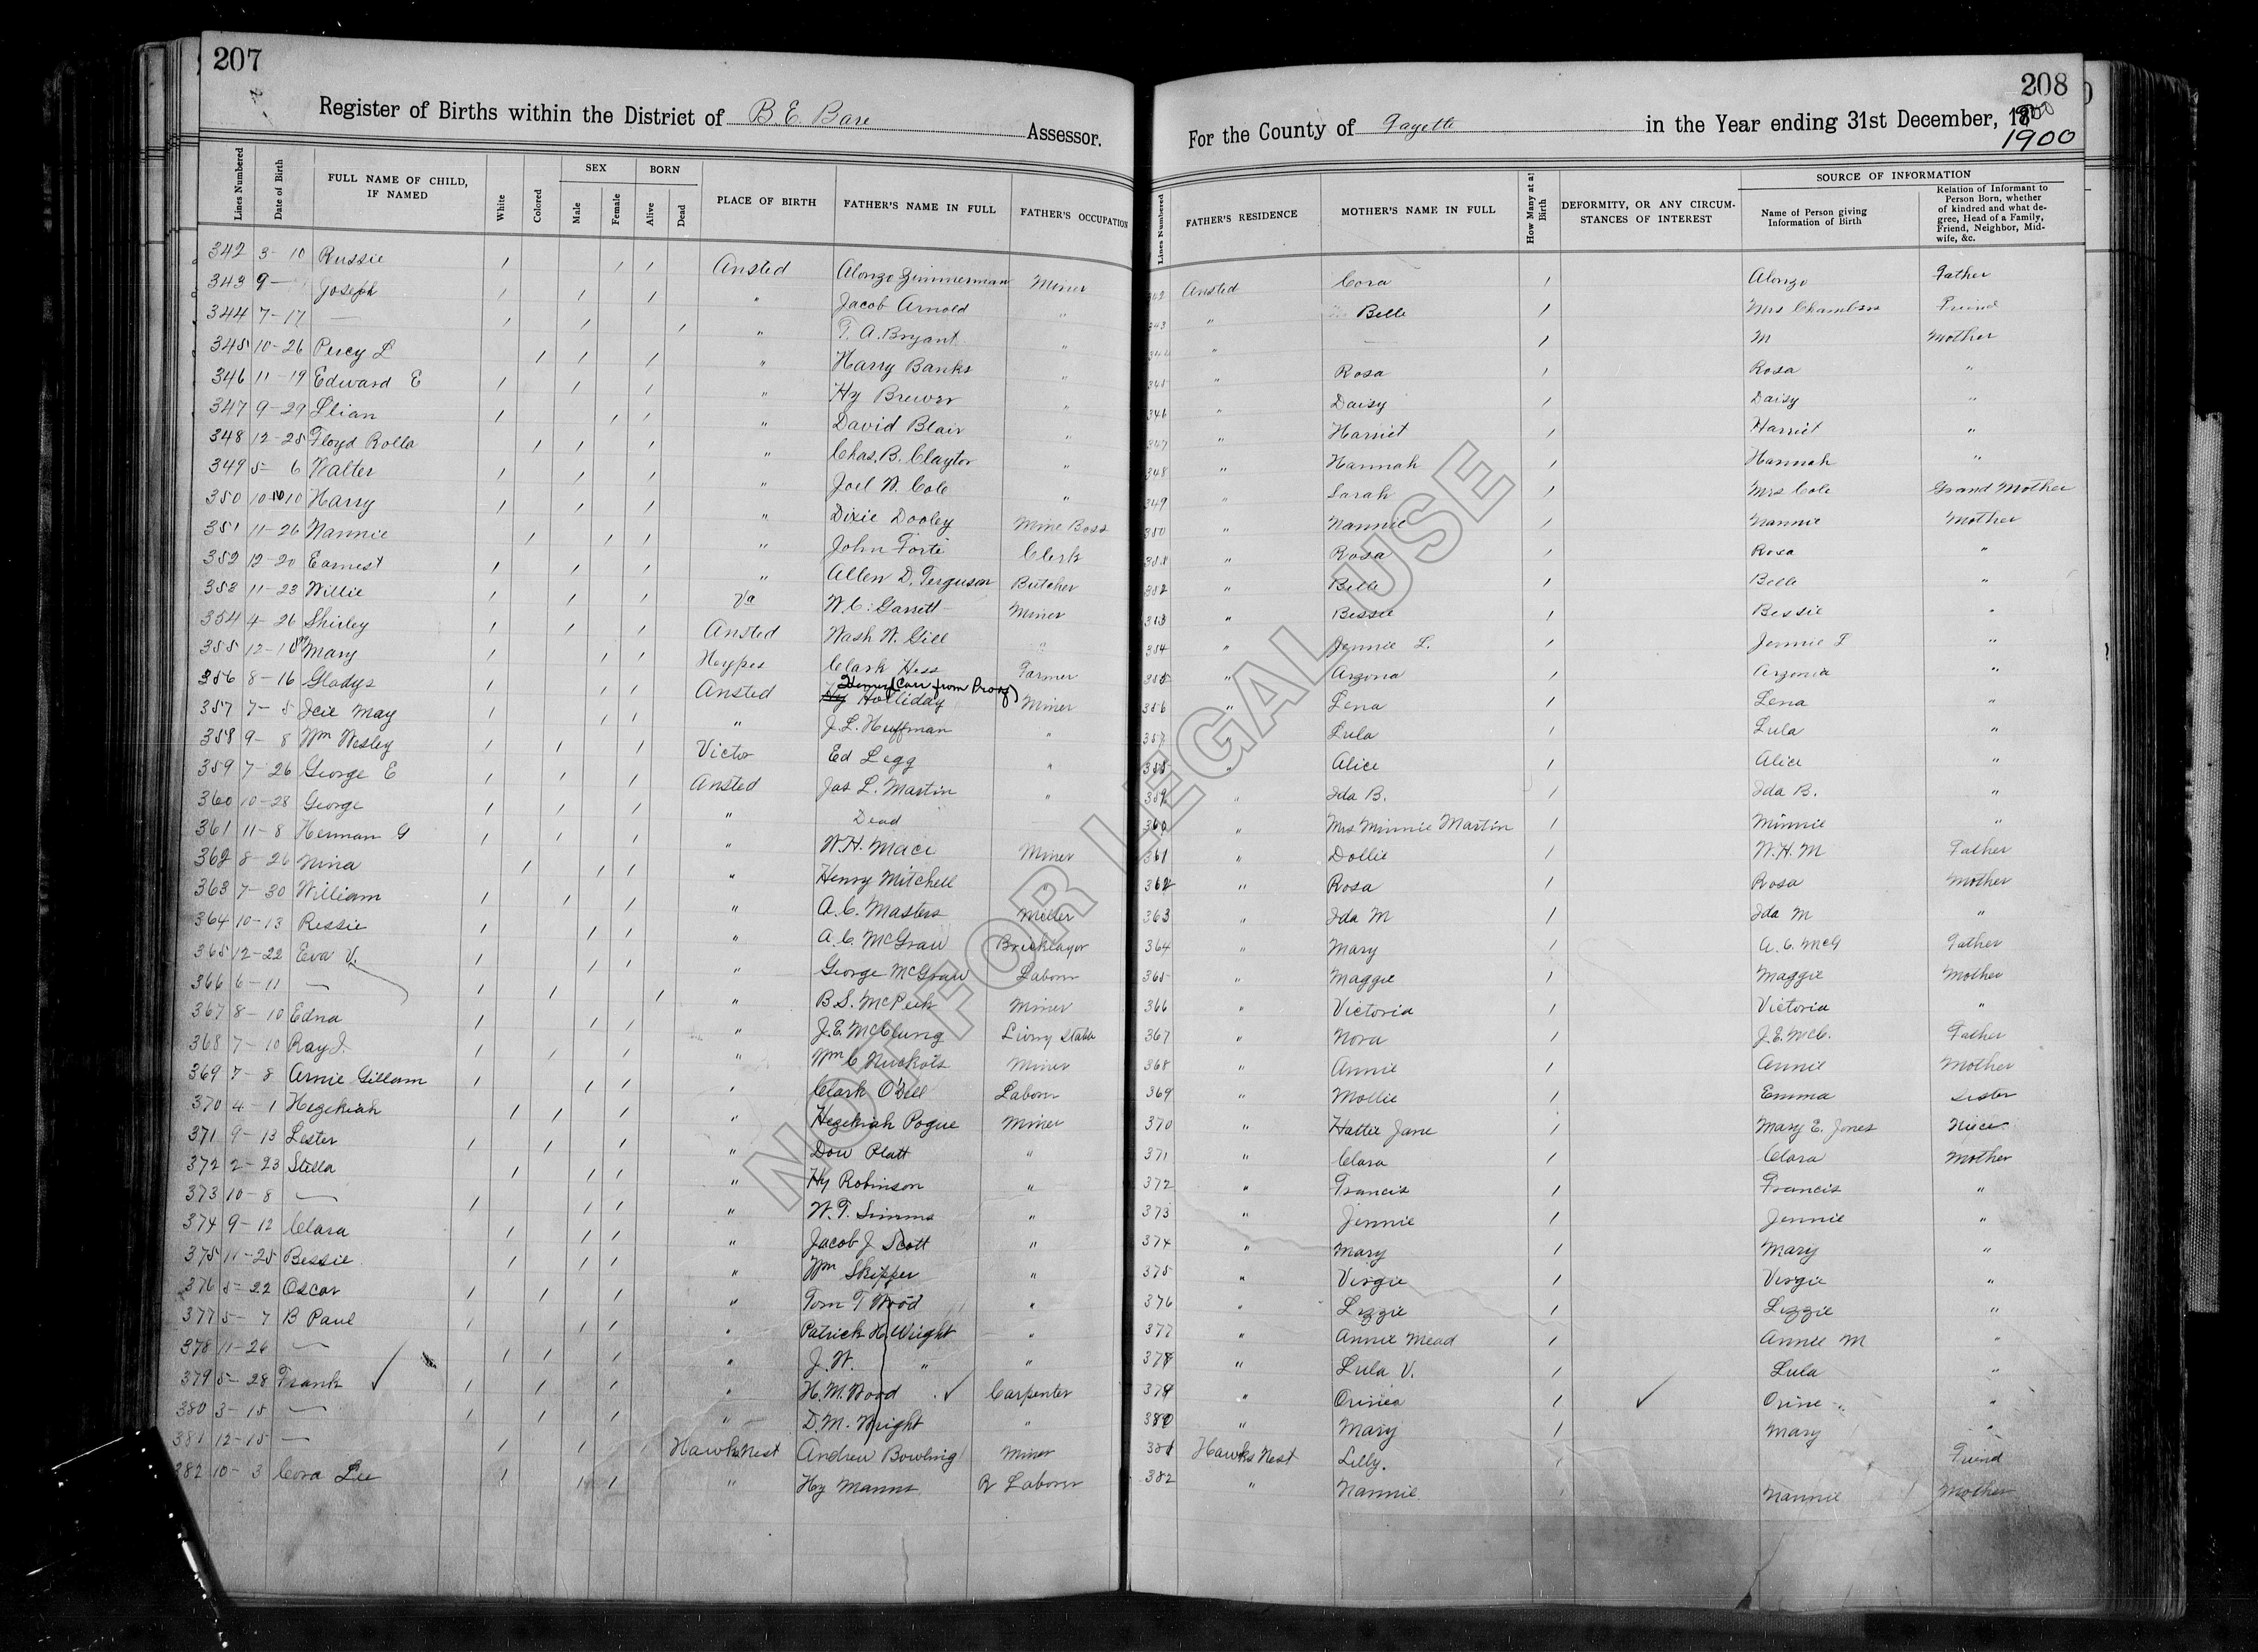 207
Register of Births within the District of B. E. Bare Assessor.
Lines Numbered | Date of Birth | FULL NAME OF CHILD, IF NAMED | White | Colored | SEX Male Female | BORN Alive Dead | PLACE OF BIRTH | FATHER'S NAME IN FULL | FATHER'S OCCUPATION
342 3-10 Russie / / / Ansted Alonzo Zimmerman Miner
343 9- Joseph / / / " Jacob Arnold "
344 7-17 — / / / " T. A. Bryant "
345 10-26 Percy L / / / " Harry Banks "
346 11-19 Edward E / / / " Hy Brewer "
347 9-29 Lilian / / / " David Blair "
348 12-25 Floyd Rolla / / / " Chas. B. Claytor "
349 5-6 Walter / / / " Joel W. Cole "
350 10-10 Harry / / / " Dixie Dooley Mine Boss
351 11-26 Nannie / / / " John Forte Clerk
352 12-20 Earnest / / / " Allen D. Ferguson Butcher
353 11-23 Willie / / / Va W. C. Garrett Miner
354 4-26 Shirley / / / Ansted Wash W. Gill "
355 12-18 Mary / / / Heypes Clark Hess Farmer
356 8-16 Gladys / / / Ansted Henry (Corr from Proof) Hy Holliday Miner
357 7-5 Icie May / / / " J. L. Huffman "
358 9-8 Wm Wesley / / / Victor Ed Legg "
359 7-26 George E / / / Ansted Jas L. Martin "
360 10-28 George / / / " Dead —
361 11-8 Herman G / / / " W. H. Mace Miner
362 8-26 Nina / / / " Henry Mitchell "
363 7-30 William / / / " A. C. Masters Miller
364 10-13 Ressie / / / " A. C. McGraw Bricklayer
365 12-22 Eva V. / / / " George McGraw Laborer
366 6-11 — / / / " B. S. McPeek Miner
367 8-10 Edna / / / " J. E. McClung Livry Stable
368 7-10 Ray J. / / / " Wm C Nuckols Miner
369 7-8 Arnie Gillam / / / " Clark O'Dell Laborer
370 4-1 Hezekiah / / / " Hezekiah Pogue Miner
371 9-13 Lester / / / " Dow Platt "
372 2-23 Stella / / / " Hy Robinson "
373 10-8 — / / / " W. T. Simms "
374 9-12 Clara / / / " Jacob J Scott "
375 11-25 Bessie / / / " Wm Skipper "
376 5-22 Oscar / / / " Tom T Wood "
377 5-7 B Paul / / / " Patrick H. Wright "
378 11-26 — / / / " J. W. " "
379 5-28 Frank ✓ / / / " H. M. Wood ✓ Carpenter
380 3-15 — / / / " D. M. Wright "
381 12-15 — / / / Hawks Nest Andrew Bowling Miner
382 10-3 Cora Lee / / " Hy Manns R Laborer
208
For the County of Fayette in the Year ending 31st December, 1900
1900
Lines Numbered | FATHER'S RESIDENCE | MOTHER'S NAME IN FULL | How Many at a Birth | DEFORMITY, OR ANY CIRCUMSTANCES OF INTEREST | SOURCE OF INFORMATION | Name of Person giving Information of Birth | Relation of Informant to Person Born, whether of kindred and what degree, Head of a Family, Friend, Neighbor, Midwife, &c.
342 Ansted Cora / Alonzo Father
343 " Belle / Mrs Chambers Friend
344 " — / M Mother
345 " Rosa / Rosa "
346 " Daisy / Daisy "
347 " Harriet / Harriet "
348 " Hannah / Hannah "
349 " Sarah / Mrs Cole Grand Mother
350 " Nannie / Nannie Mother
351 " Rosa / Rosa "
352 " Belle / Belle "
353 " Bessie / Bessie "
354 " Jennie L. / Jennie L "
355 " Arzona / Arzonia "
356 " Lena / Lena "
357 " Lula / Lula "
358 " Alice / Alice "
359 " Ida B. / Ida B. "
360 " Mrs. Minnie Martin / Minnie "
361 " Dollie / W. H. M Father
362 " Rosa / Rosa Mother
363 " Ida M / Ida M "
364 " Mary / A. C. McG Father
365 " Maggie / Maggie Mother
366 " Victoria / Victoria "
367 " Nora / J. E. McC. Father
368 " Annie / Annie Mother
369 " Mollie / Emma Sister
370 " Hattie Jane / Mary E. Jones Niece
371 " Clara / Clara Mother
372 " Francis / Francis "
373 " Jennie / Jennie "
374 " Mary / Mary "
375 " Virgie / Virgie "
376 " Lizzie / Lizzie "
377 " Annie Mead / Annie M "
378 " Lula V. / Lula "
379 " Orinea / ✓ Orine "
380 " Mary / Mary "
381 Hawks Nest Lilly. / Friend
382 " Nannie / Nannie Mother
NOT FOR LEGAL USE